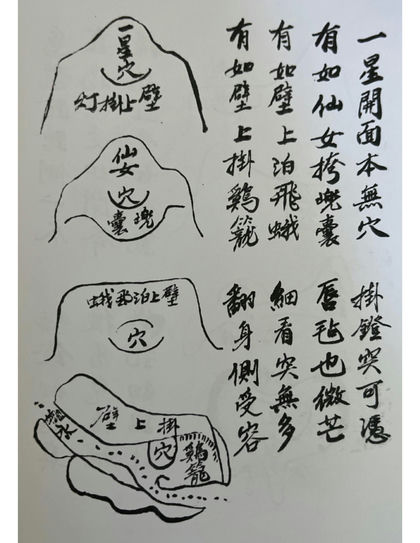 一星開面本無穴
掛鐙突可憑
有如仙女挎兜囊
唇毡也微芒
有如壁上泊飛蛾
細看突無多
有如壁上掛鷄籠
翻身側受容
一星穴
壁上掛灯
仙女
穴
兜囊
壁上泊飛蛾
穴
壁上掛
鷄籠
穴